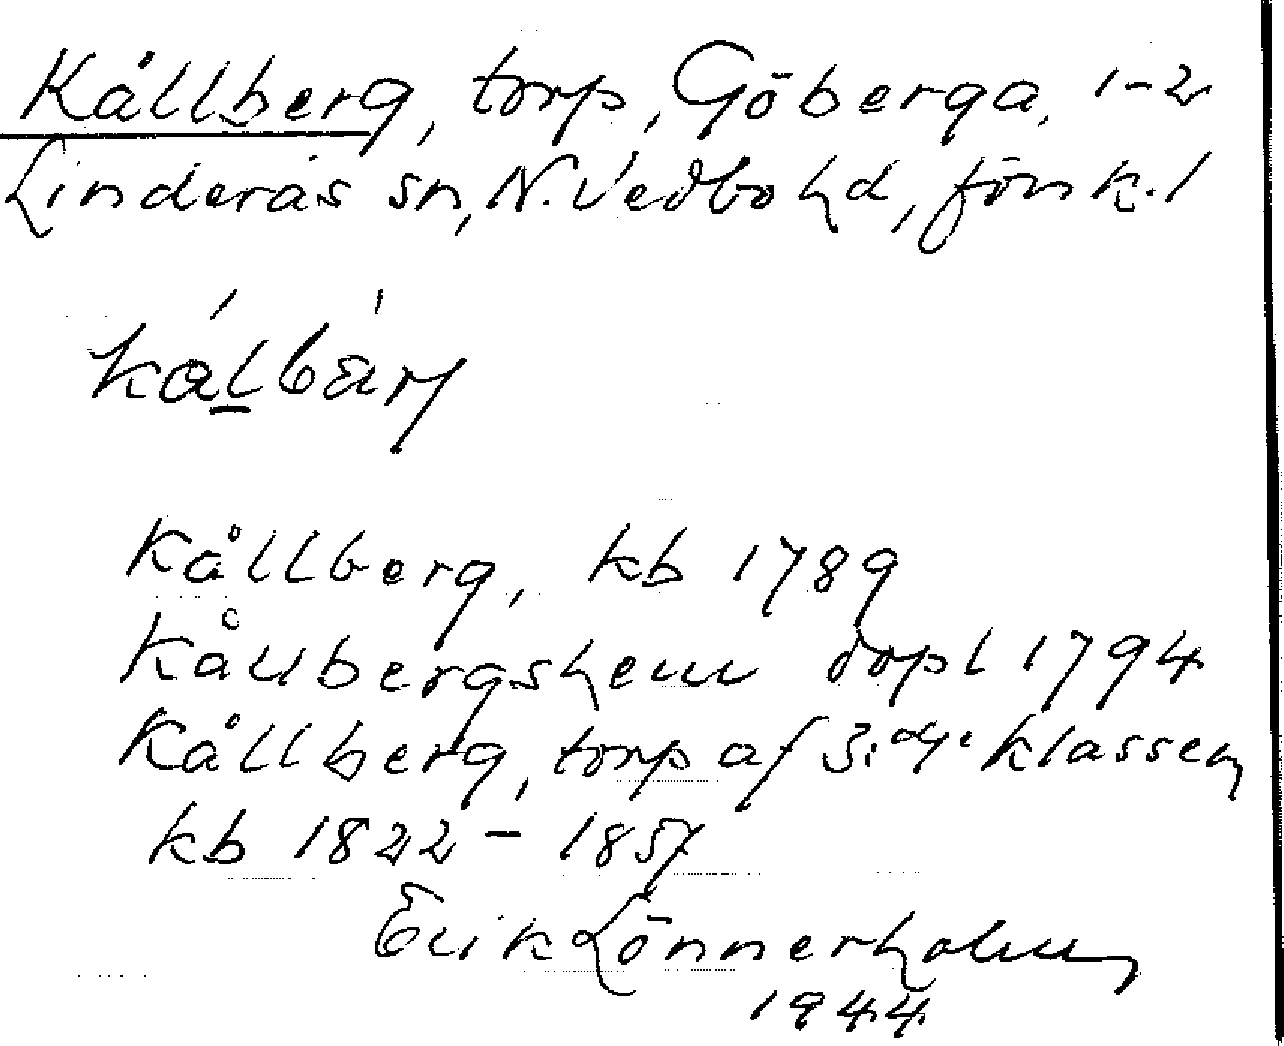 Kållberg, torp, Göberga, 1-2
Linderås sn, N. Vedbo hd, Jönk. l
kálbär
Kållberg, kb 1789
Kållbergshem dopl 1794
Kållberg, torp af 3:dje klassen
kb 1822 - 1857
Erik Lönnerholm
1944